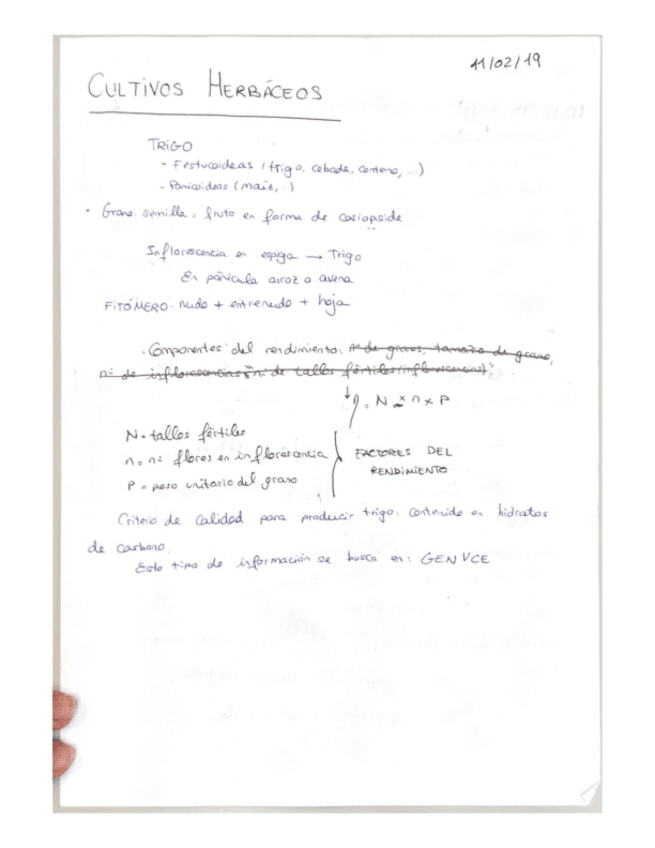 11/02/19
CULTIVOS HERBÁCEOS
TRIGO
- Festucoideas (trigo, cebada, centeno, ...)
- Panicoideas (maíz, ..)
· Grano: semilla, fruto en forma de cariopside
Inflorescencia en espiga → Trigo
En pánicula arroz o avena
FITÓMERO: nudo + entrenudo + hoja
· Componentes del rendimiento: nº de granos, tamaño de grano,
nº de inflorescencias nº de tallos fértiles (inflorescencias)
↓ η = N x n x P
N = tallos fértiles
n = nº flores en inflorescencia
P = peso unitario del grano
FACTORES DEL
RENDIMIENTO
Criterio de calidad para producir trigo: contenido en hidratos
de carbono.
Este tipo de información se busca en: GENVCE